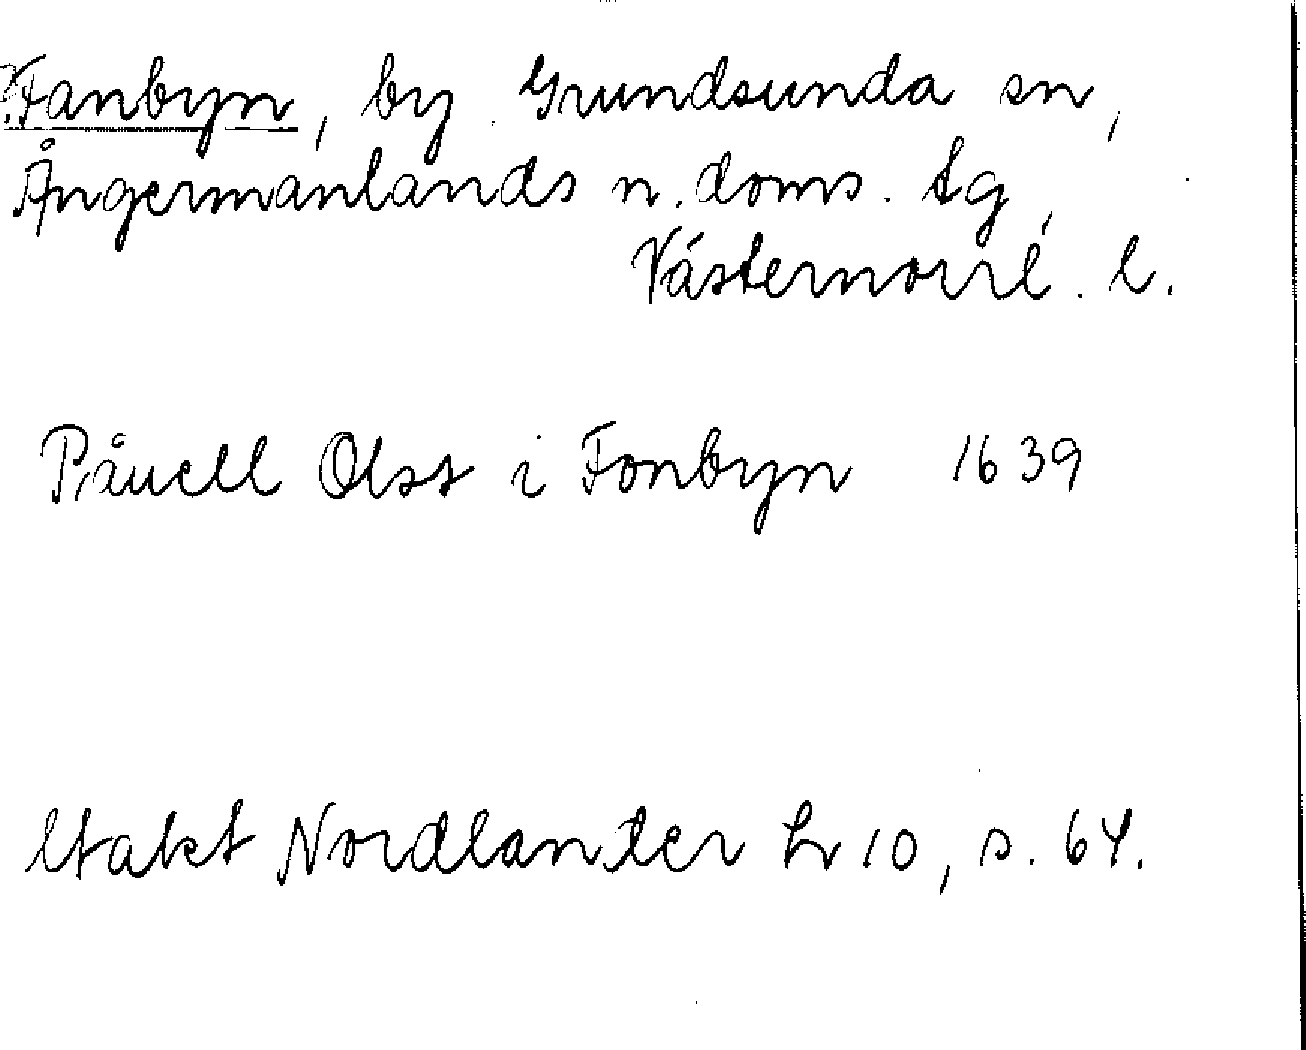 Fanbyn, by Grundsunda sn,
Ångermanlands n. doms. tg,
Västernorrl. l.
Påuell Olss i Fonbyn 1639
Utakt Nordlander h 10, s. 64.